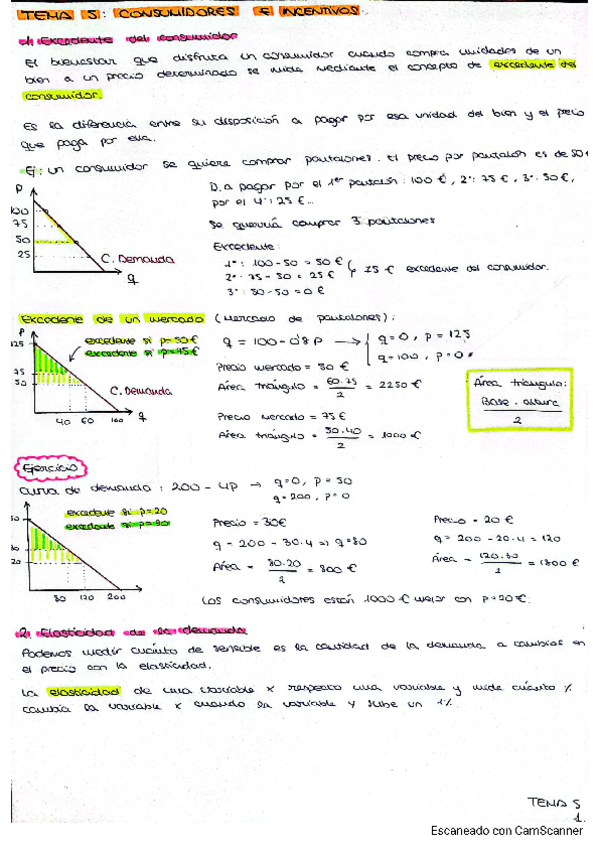 TEMA 5: CONSUMIDORES E INCENTIVOS.
1) Excedente del consumidor
El bienestar que disfruta un consumidor cuando compra unidades de un
bien a un precio determinado se mide mediante el concepto de excedente del
consumidor.
Es la diferencia entre su disposición a pagar por esa unidad del bien y el precio
que paga por ella.
Ej: un consumidor se quiere comprar pantalones. El precio por pantalón es de 50 €
P
100
75
50
25
C. Demanda
q
D. a pagar por el 1er pantalón: 100 €, 2º: 75 €, 3º: 50 €,
por el 4º: 25 €...
Se querría comprar 3 pantalones
Excedente:
1º: 100-50 = 50 €
2º: 75-50 = 25 €
3º: 50-50 = 0 €
75 € excedente del consumidor.
Excedente de un mercado (Mercado de pantalones):
P
125
75
50
excedente si p=50 €
excedente si p=75 €
C. Demanda
40 60 100 q
q = 100-0'8p → q=0, p=125
q=100, p=0
Precio mercado = 50 €
Área triángulo = 60·75 / 2 = 2250 €
Precio mercado = 75 €
Área triángulo = 50·40 / 2 = 1000 €
Área triángulo:
Base · altura
2
Ejercicio
Curva de demanda: 200 - 4p → q=0, p=50
q=200, p=0
50
30
20
excedente si p=20
excedente si p=30
80 120 200
Precio = 30€
q = 200-30·4 ⇒ q=80
Área = 80·20 / 2 = 800 €
Precio = 20 €
q = 200-20·4 = 120
Área = 120·30 / 2 = 1800 €
Los consumidores están 1000 € mejor con p=20€.
2. Elasticidad de la demanda
Podemos medir cuánto de sensible es la cantidad de la demanda a cambios en
el precio con la elasticidad.
La elasticidad de una variable x respecto una variable y mide cuánto %
cambia la variable x cuando la variable y sube un 1%.
TEMA 5
1.
Escaneado con CamScanner